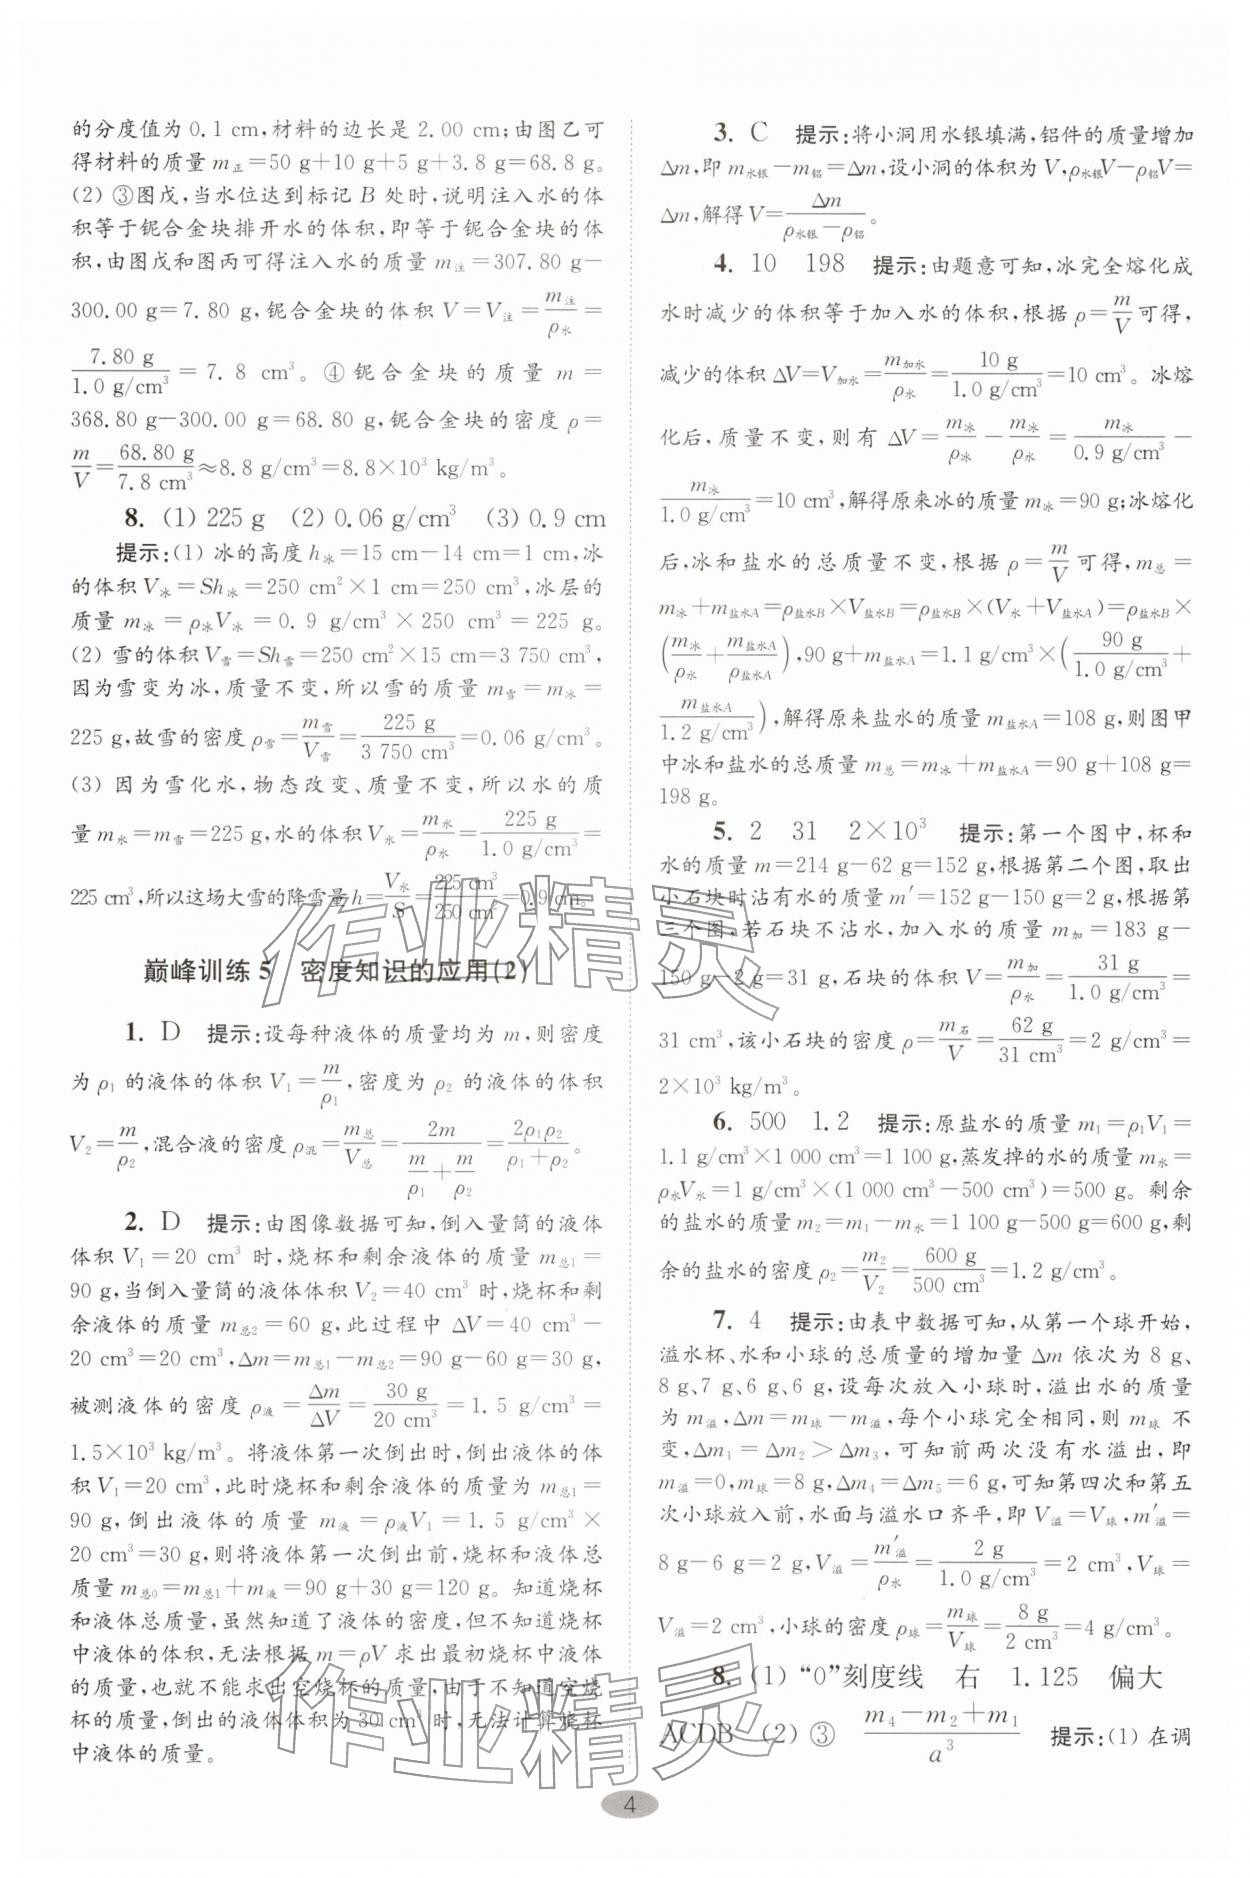 的分度值为 0.1 cm,材料的边长是 2.00 cm;由图乙可
得材料的质量 m正=50 g+10 g+5 g+3.8 g=68.8 g。
(2) ③图戊,当水位达到标记 B 处时,说明注入水的体
积等于铌合金块排开水的体积,即等于铌合金块的体
积,由图戊和图丙可得注入水的质量 m注=307.80 g-
300.00 g=7.80 g,铌合金块的体积 V=V注=m注/ρ水=
7.80 g/1.0 g/cm³=7.8 cm³。④ 铌合金块的质量 m=
368.80 g-300.00 g=68.80 g,铌合金块的密度 ρ=
m/V=68.80 g/7.8 cm³≈8.8 g/cm³=8.8×10³ kg/m³。
8. (1) 225 g (2) 0.06 g/cm³ (3) 0.9 cm
提示:(1) 冰的高度 h冰=15 cm-14 cm=1 cm,冰
的体积 V冰=Sh冰=250 cm²×1 cm=250 cm³,冰层的
质量 m冰=ρ冰V冰=0.9 g/cm³×250 cm³=225 g。
(2) 雪的体积 V雪=Sh雪=250 cm²×15 cm=3 750 cm³,
因为雪变为冰,质量不变,所以雪的质量 m雪=m冰=
225 g,故雪的密度 ρ雪=m雪/V雪=225 g/3 750 cm³=0.06 g/cm³。
(3) 因为雪化水,物态改变、质量不变,所以水的质
量 m水=m雪=225 g,水的体积 V水=m水/ρ水=225 g/1.0 g/cm³=
225 cm³,所以这场大雪的降雪量 h=V水/S=225 cm³/250 cm²=0.9 cm。
巅峰训练 5 密度知识的应用(2)
1. D 提示:设每种液体的质量均为 m,则密度
为 ρ₁ 的液体的体积 V₁=m/ρ₁,密度为 ρ₂ 的液体的体积
V₂=m/ρ₂,混合液的密度 ρ混=m总/V总=2m/(m/ρ₁+m/ρ₂)=2ρ₁ρ₂/(ρ₁+ρ₂)。
2. D 提示:由图像数据可知,倒入量筒的液体
体积 V₁=20 cm³ 时,烧杯和剩余液体的质量 m总1=
90 g,当倒入量筒的液体体积 V₂=40 cm³ 时,烧杯和剩
余液体的质量 m总2=60 g,此过程中 ΔV=40 cm³-
20 cm³=20 cm³,Δm=m总1-m总2=90 g-60 g=30 g,
被测液体的密度 ρ液=Δm/ΔV=30 g/20 cm³=1.5 g/cm³=
1.5×10³ kg/m³。将液体第一次倒出时,倒出液体的体
积 V₁=20 cm³,此时烧杯和剩余液体的质量为 m总1=
90 g,倒出液体的质量 m液=ρ液V₁=1.5 g/cm³×
20 cm³=30 g,则将液体第一次倒出前,烧杯和液体总
质量 m总0=m总1+m液=90 g+30 g=120 g。知道烧杯
和液体总质量,虽然知道了液体的密度,但不知道烧杯
中液体的体积,无法根据 m=ρV 求出最初烧杯中液体
的质量,也就不能求出空烧杯的质量,由于不知道空烧
杯的质量,倒出的液体体积为 30 cm³ 时,无法计算烧杯
中液体的质量。
3. C 提示:将小洞用水银填满,铝件的质量增加
Δm,即 m水银-m铝=Δm,设小洞的体积为 V,ρ水银V-ρ铝V=
Δm,解得 V=Δm/(ρ水银-ρ铝)。
4. 10 198 提示:由题意可知,冰完全熔化成
水时减少的体积等于加入水的体积,根据 ρ=m/V可得,
减少的体积 ΔV=V加水=m加水/ρ水=10 g/1.0 g/cm³=10 cm³。冰熔
化后,质量不变,则有 ΔV=m冰/ρ冰-m冰/ρ水=m冰/0.9 g/cm³-
m冰/1.0 g/cm³=10 cm³,解得原来冰的质量 m冰=90 g;冰熔化
后,冰和盐水的总质量不变,根据 ρ=m/V可得,m总=
m冰+m盐水A=ρ盐水B×V盐水B=ρ盐水B×(V水+V盐水A)=ρ盐水B×
(m冰/ρ水+m盐水A/ρ盐水A),90 g+m盐水A=1.1 g/cm³×(90 g/1.0 g/cm³+
m盐水A/1.2 g/cm³),解得原来盐水的质量 m盐水A=108 g,则图甲
中冰和盐水的总质量 m总=m冰+m盐水A=90 g+108 g=
198 g。
5. 2 31 2×10³ 提示:第一个图中,杯和
水的质量 m=214 g-62 g=152 g,根据第二个图,取出
小石块时沾有水的质量 m′=152 g-150 g=2 g,根据第
三个图,若石块不沾水,加入水的质量 m加=183 g-
150 g-2 g=31 g,石块的体积 V=m加/ρ水=31 g/1.0 g/cm³=
31 cm³,该小石块的密度 ρ=m石/V=62 g/31 cm³=2 g/cm³=
2×10³ kg/m³。
6. 500 1.2 提示:原盐水的质量 m₁=ρ₁V₁=
1.1 g/cm³×1 000 cm³=1 100 g,蒸发掉的水的质量 m水=
ρ水V水=1 g/cm³×(1 000 cm³-500 cm³)=500 g。剩余
的盐水的质量 m₂=m₁-m水=1 100 g-500 g=600 g,剩
余的盐水的密度 ρ₂=m₂/V₂=600 g/500 cm³=1.2 g/cm³。
7. 4 提示:由表中数据可知,从第一个球开始,
溢水杯、水和小球的总质量的增加量 Δm 依次为 8 g、
8 g、7 g、6 g、6 g,设每次放入小球时,溢出水的质量
为 m溢,Δm=m球-m溢,每个小球完全相同,则 m球 不
变,Δm₁=Δm₂>Δm₃,可知前两次没有水溢出,即
m溢=0,m球=8 g,Δm₄=Δm₅=6 g,可知第四次和第五
次小球放入前,水面与溢水口齐平,即 V溢=V球,m′溢=
8 g-6 g=2 g,V溢=m′溢/ρ水=2 g/1.0 g/cm³=2 cm³,V球=
V溢=2 cm³,小球的密度 ρ球=m球/V球=8 g/2 cm³=4 g/cm³。
8. (1) “0”刻度线 右 1.125 偏大
ACDB (2) ③ (m₄-m₂+m₁)/a³ 提示:(1) 在调
4
作业精灵
作业精灵